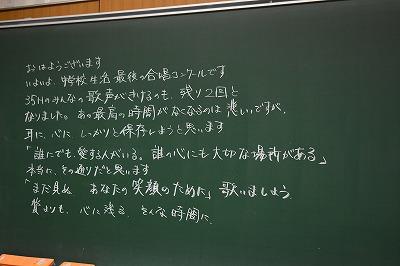 おはようございます
いよいよ、学校生活 最後の合唱コンクールです
35Hのみんなの歌声がきけるのも、残り2回と
なりました。あの最高の時間がなくなるのは 悲しいですが、
耳に、心に、しっかりと保存しようと思います
「誰にでも、愛する人がいる。誰の心にも大切な場所がある」
本当に、その通りだと思います
「まだ見ぬ あなたの笑顔のために」歌いましょう。
賞よりも、心に残る、そんな時間に、